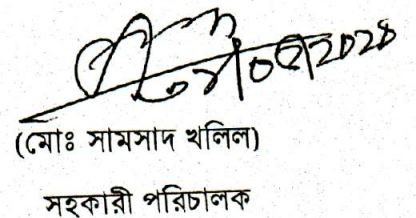 (মোঃ সামসাদ খলিল)
সহকারী পরিচালক